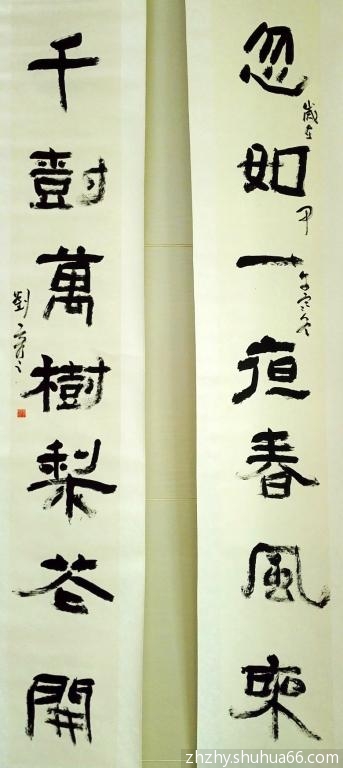 忽如一夜春風來
歲在甲午
千尌萬樹梨花開
劉
zhzhy.shuhua66.com